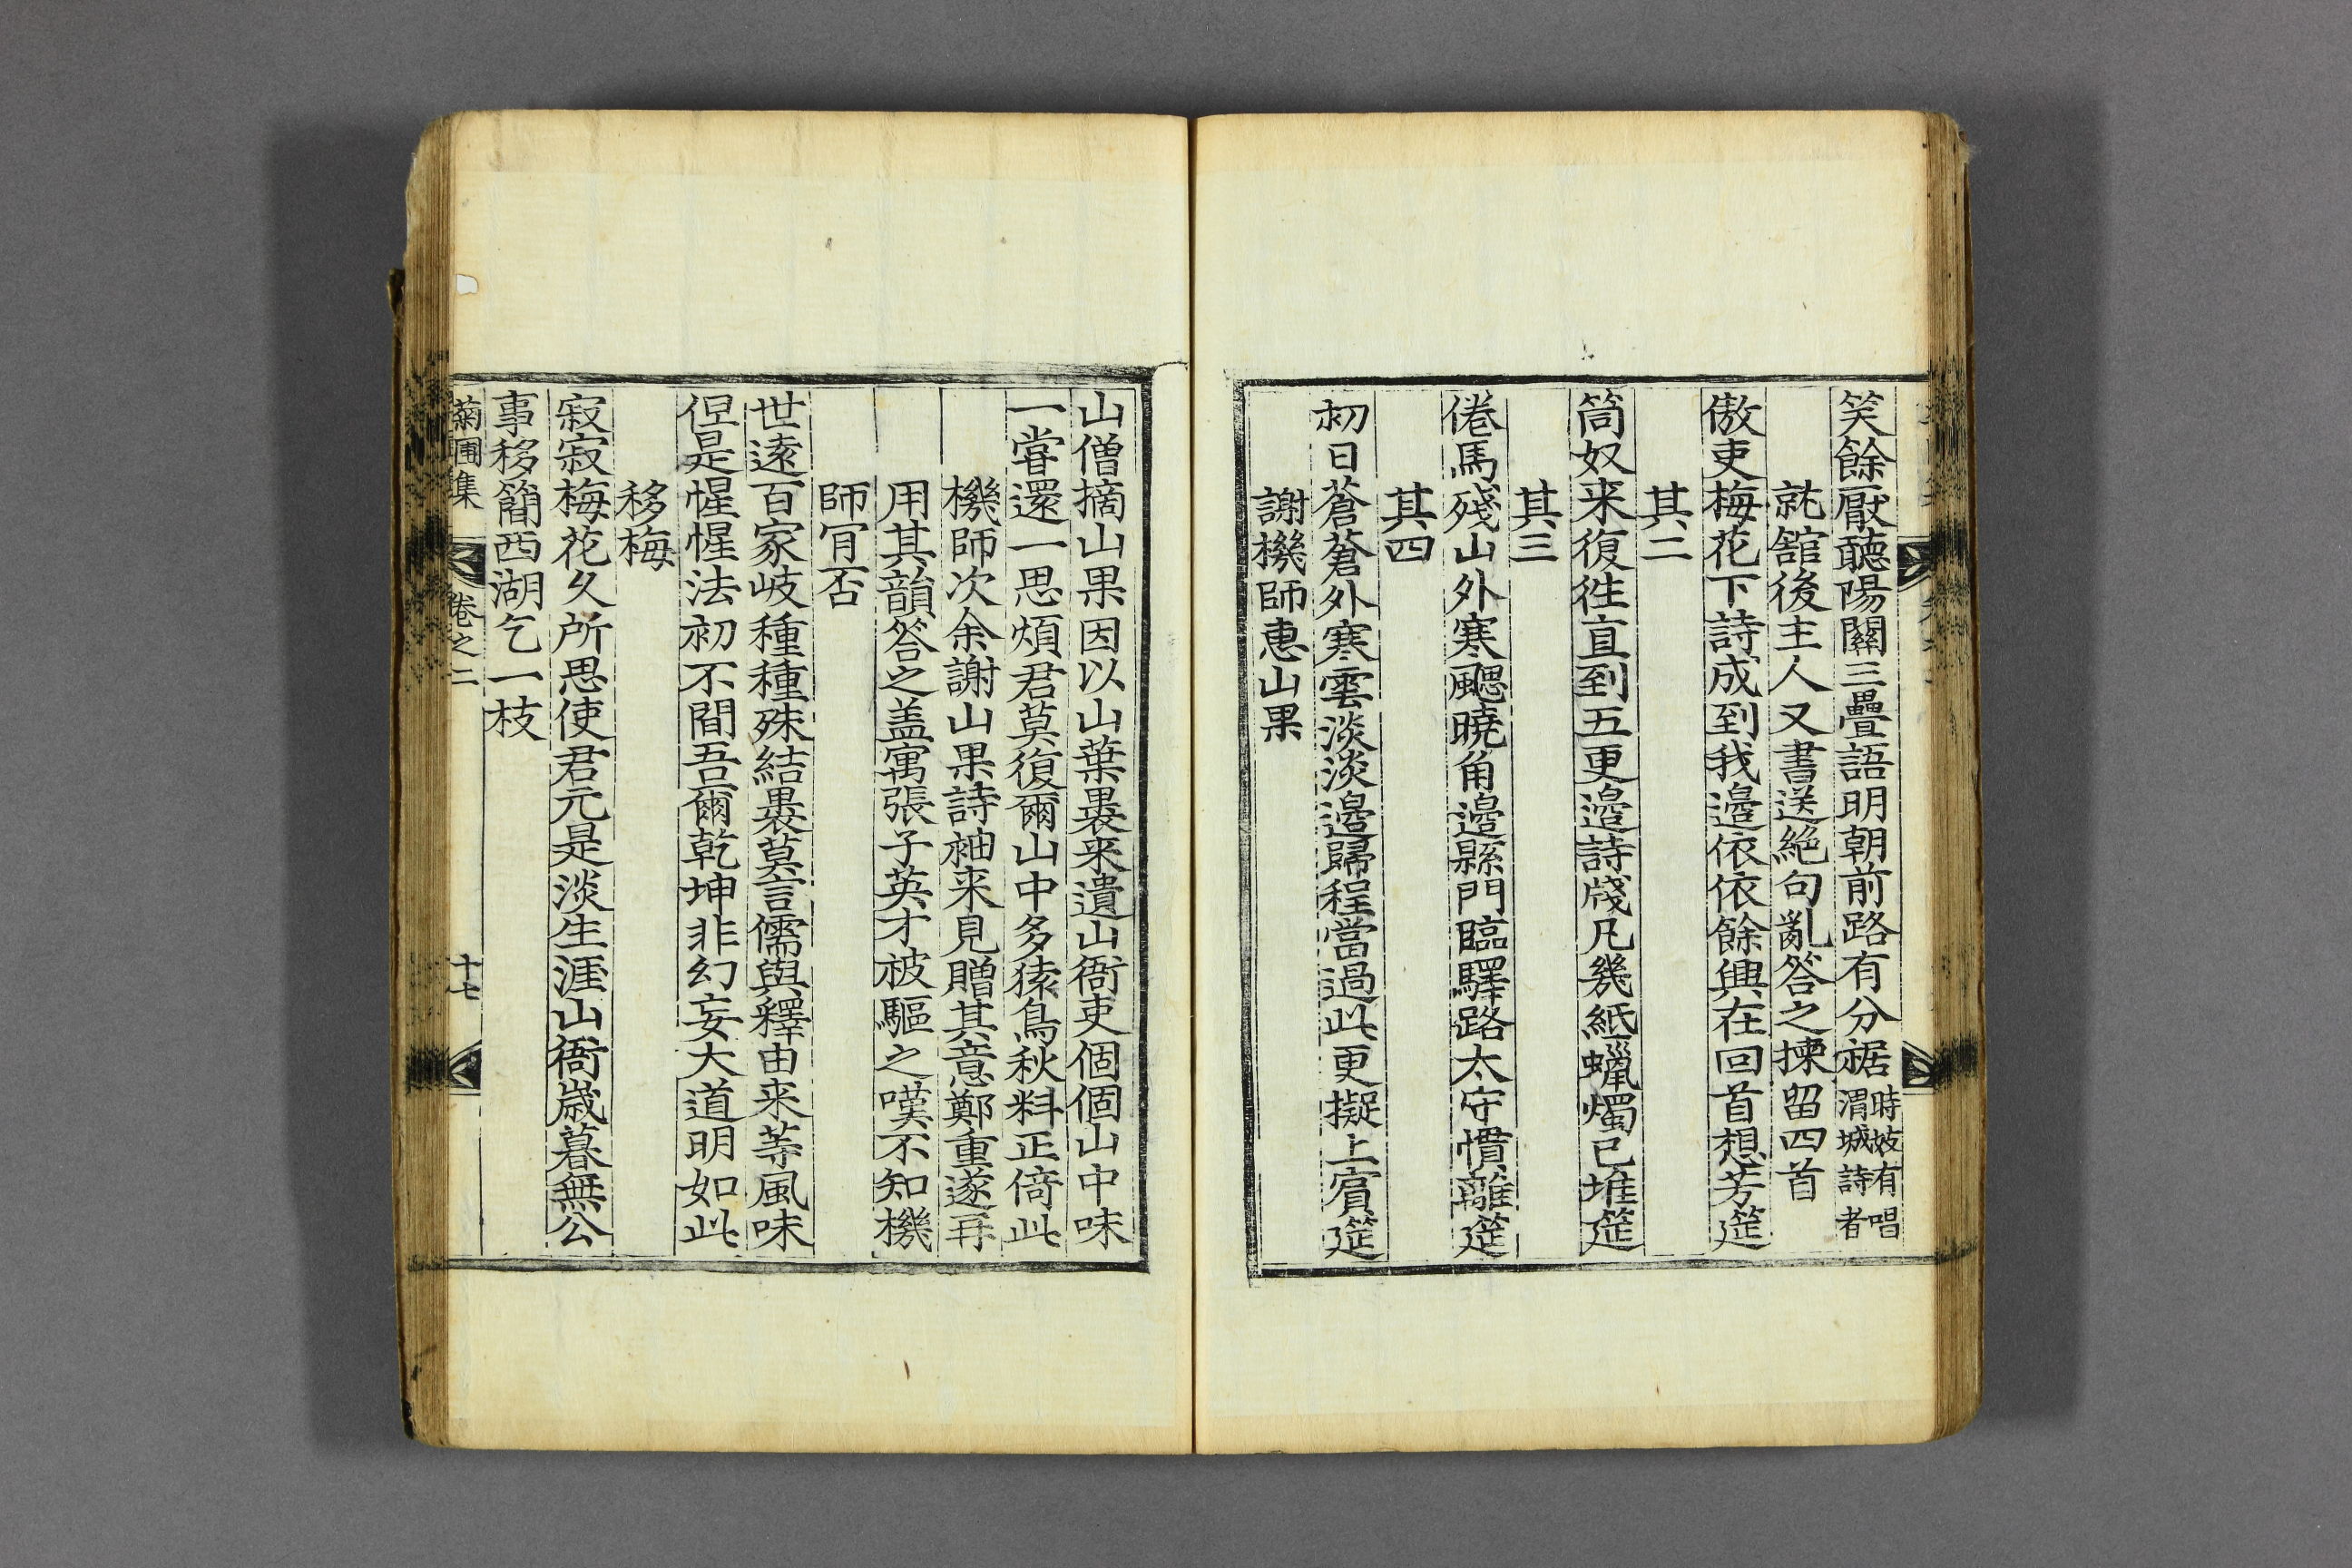 笑餘厭聽陽關三疊語明朝前路有分裾時妓有唱渭城詩者
就舘後主人又書送絶句亂答之揀留四首
傲吏梅花下詩成到我邊依依餘興在回首想芳筵
其二
筒奴来復徃直到五更邊詩牋凡幾紙蠟燭已堆筵
其三
倦馬殘山外寒颸曉角邊縣門臨驛路太守慣離筵
其四
初日蒼蒼外寒雲淡淡邊歸程當過此更擬上賓筵
謝機師惠山果
山僧摘山果因以山葉裹来遺山衙吏個個山中味
一嘗還一思煩君莫復爾山中多猿鳥秋料正倚此
機師次余謝山果詩袖来見贈其意鄭重遂再
用其韻答之盖寓張子英才被驅之嘆不知機
師肎否
世逺百家岐種種殊結裹莫言儒與釋由来等風味
但是惺惺法初不間吾爾乾坤非幻妄大道明如此
移梅
寂寂梅花久所思使君元是淡生涯山衙歲暮無公
事移簡西湖乞一枝
菊圃集 卷之二 十七